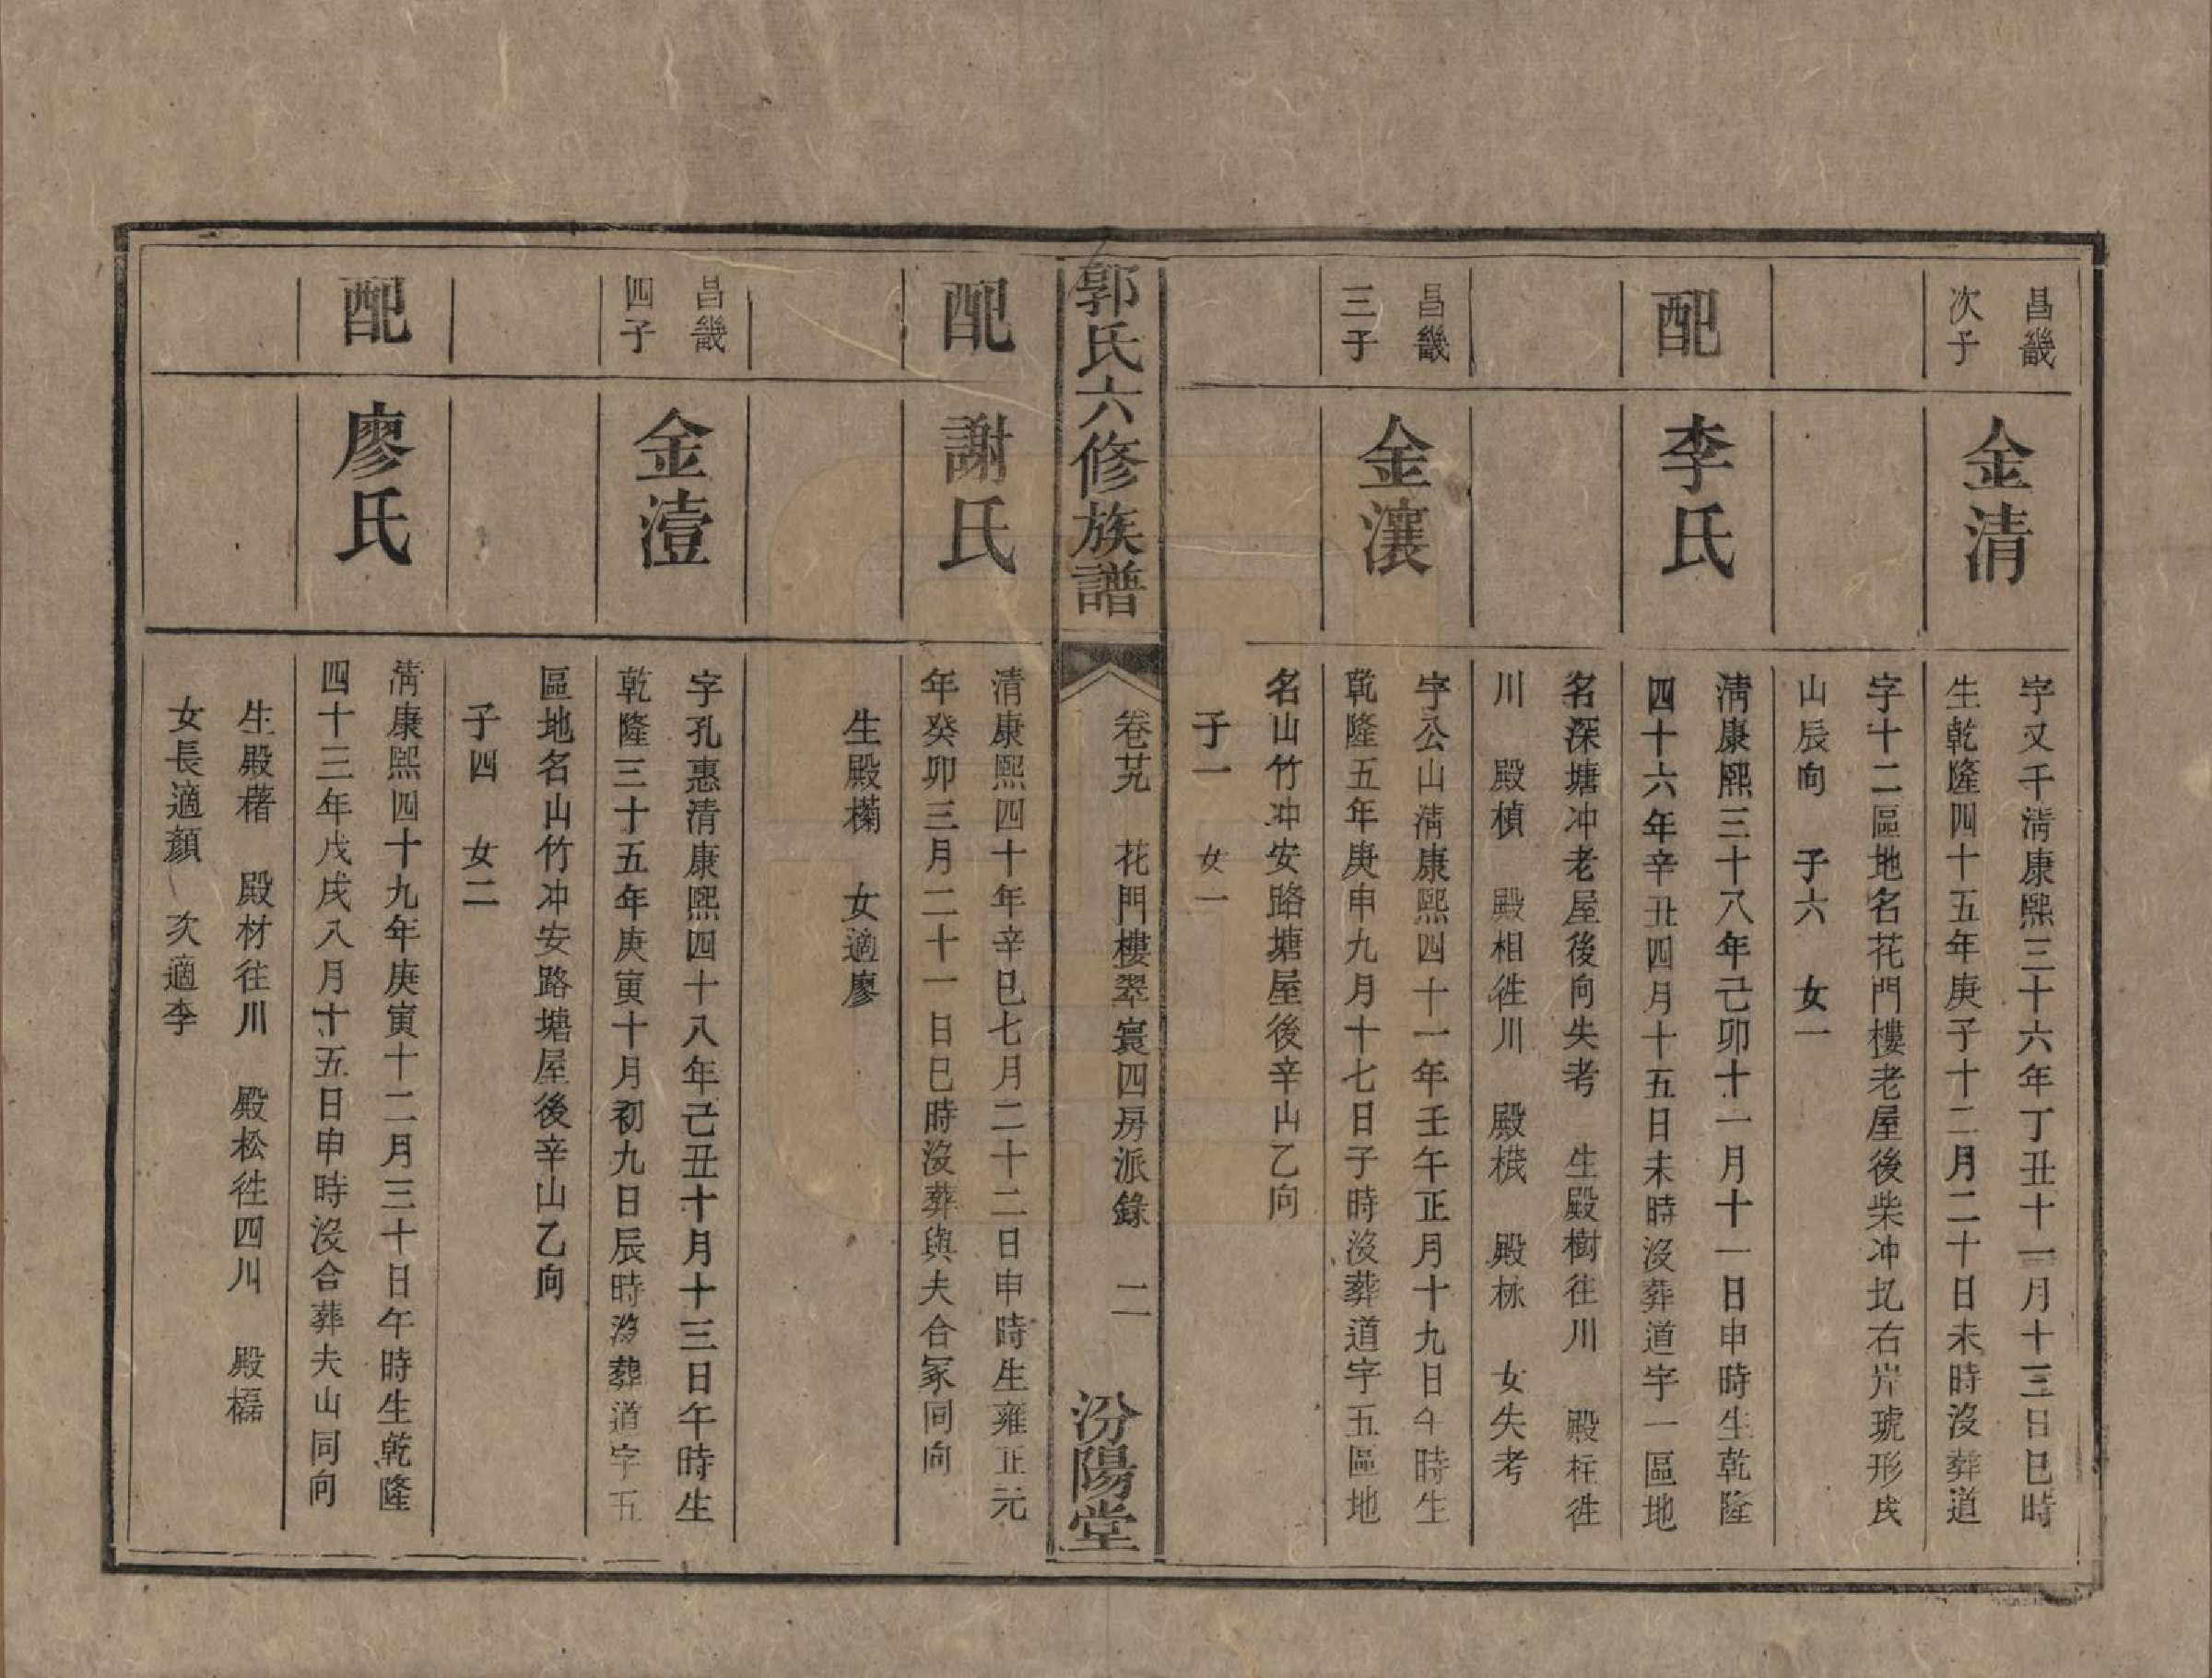 昌畿
次子
金清
字又千淸康熙三十六年丁丑十一月十三日巳時
生乾隆四十五年庚子十二月二十日未時沒葬道
字十二區地名花門樓老屋後柴冲圠右岸琥形戌
山辰向　子六　女一
配
李氏
淸康熙三十八年己卯十一月十一日申時生乾隆
四十六年辛丑四月十五日未時沒葬道字一區地
名深塘冲老屋後向失考　生殿樹往川　殿枉徃
川　殿楨　殿相徃川　殿機　殿栐　女失考
昌畿
三子
金瀼
字公山淸康熙四十一年壬午正月十九日午時生
乾隆五年庚申九月十七日子時沒葬道字五區地
名山竹冲安路塘屋後辛山乙向
子一　女一
郭氏六修族譜
卷芄　花門樓翠寰四房派錄　二
汾陽堂
配
謝氏
清康熙四十年辛巳七月二十二日申時生雍正元
年癸卯三月二十一日巳時沒葬與夫合冢同向
生殿欗　女適廖
昌畿
四子
金澅
字孔惠清康熙四十八年己丑十月十三日午時生
乾隆三十五年庚寅十月初九日辰時沒葬道字五
區地名山竹冲安路塘屋後辛山乙向
子四　女二
配
廖氏
淸康熙四十九年庚寅十二月三十日午時生乾隆
四十三年戊戌八月十五日申時沒合葬夫山同向
生殿櫡　殿材往川　殿松徃四川　殿櫑
女長適顏　次適李